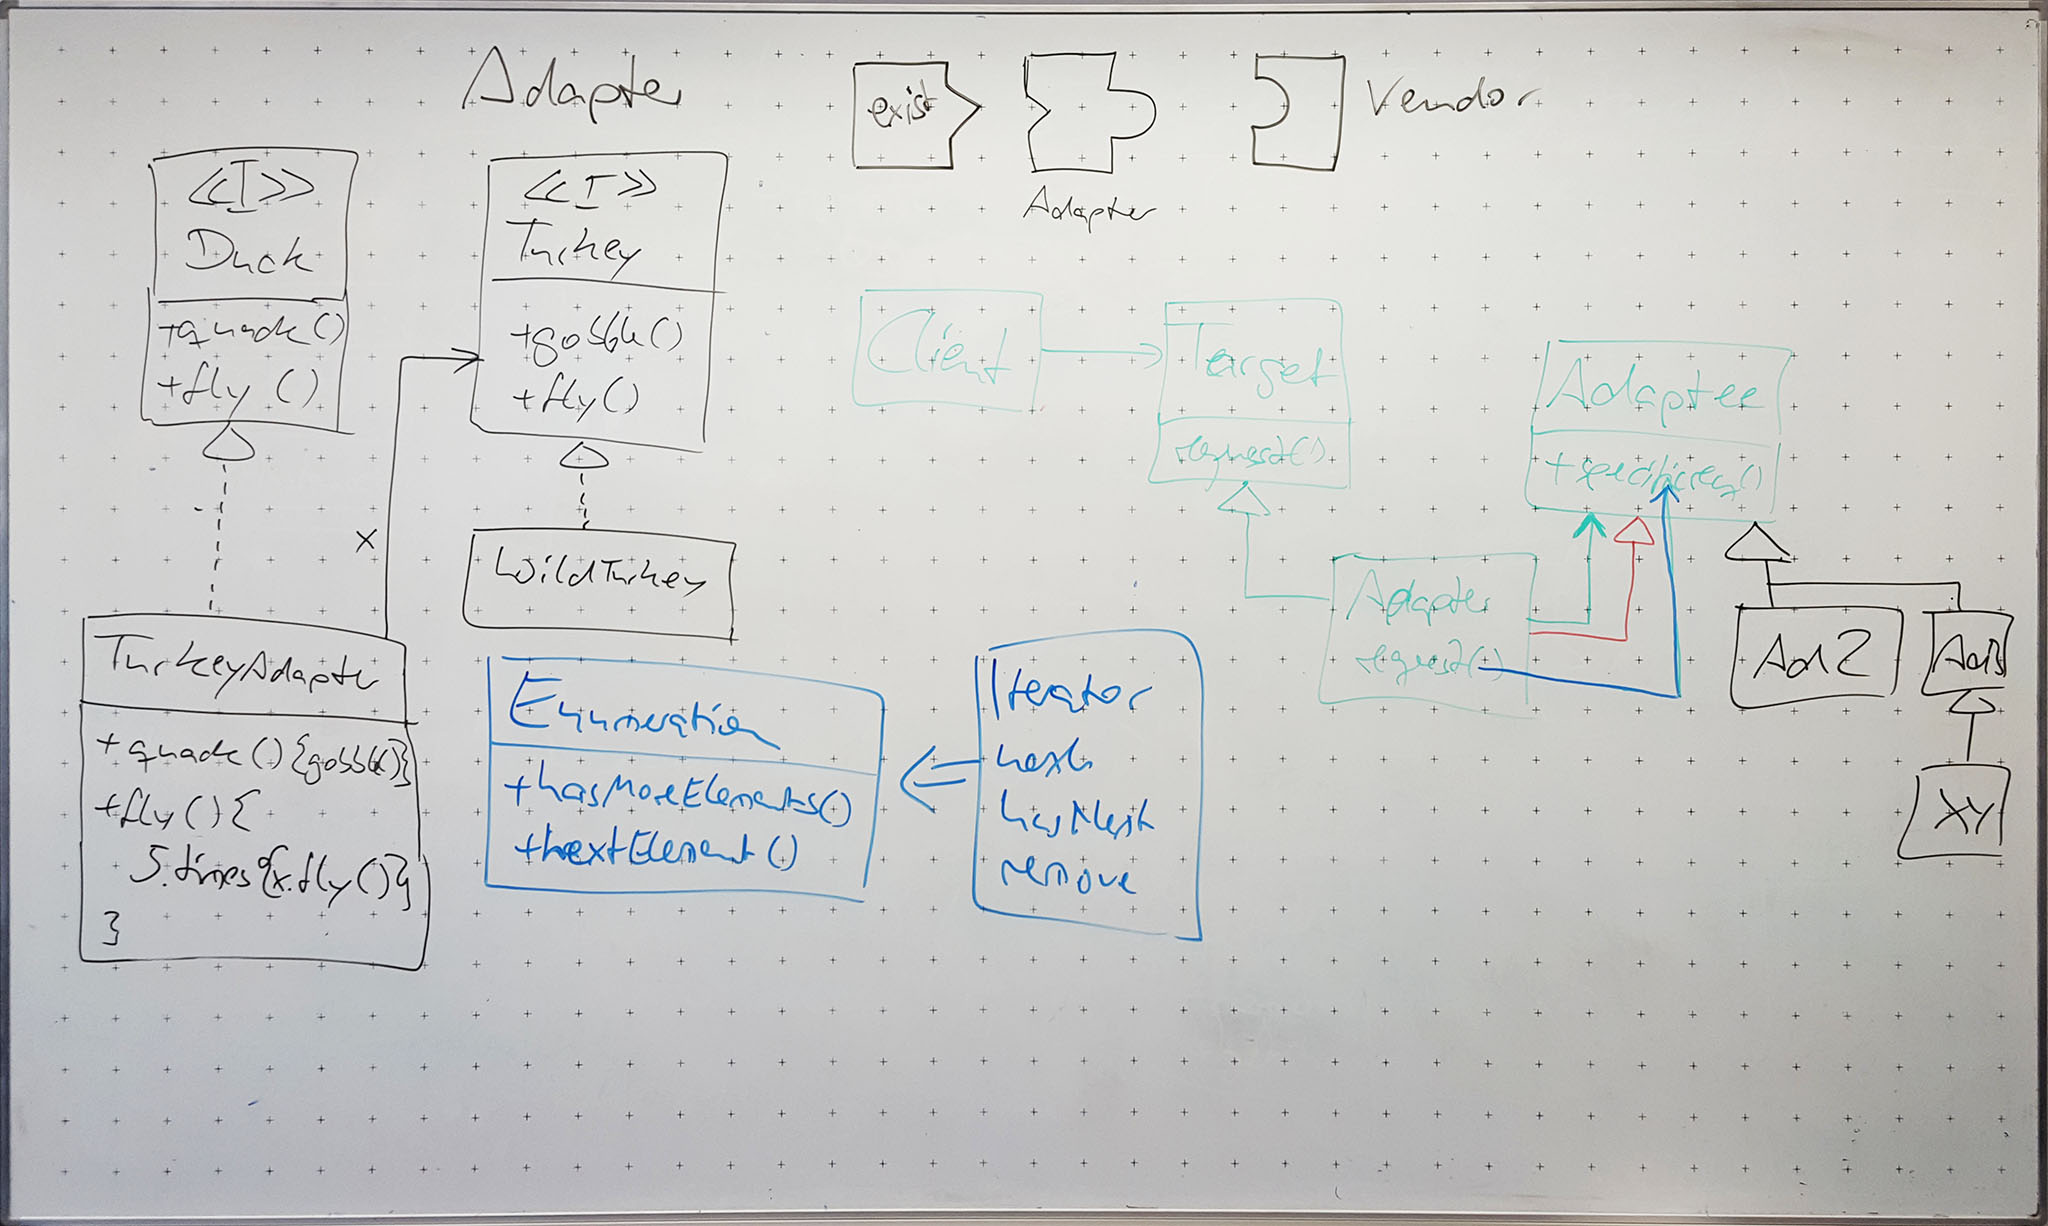 Adapter
exist
Adapter
Vendor
<<I>>
Duck
+quack()
+fly()
<<I>>
Turkey
+gobble()
+fly()
WildTurkey
x
TurkeyAdapter
+quack(){gobble()}
+fly(){
5.times{x.fly()}
}
Client
Target
request()
Adaptee
+specificreq()
Adapter
request()
Ad2
Ad3
XY
Enumeration
+hasMoreElements()
+nextElement()
Iterator
next
hasNext
remove